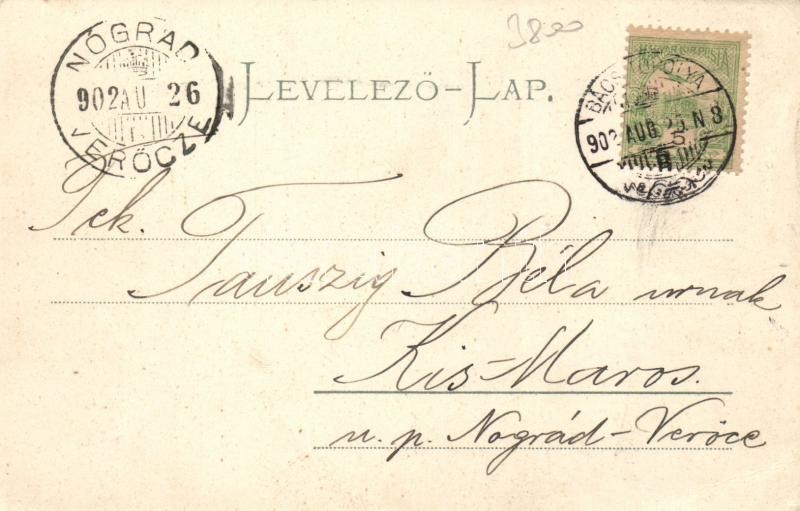 3800
NÓGRÁD
902 AU 26
VERŐCZE
LEVELEZŐ-LAP.
MAGYAR KIR. POSTA
BÁCS TOPOLYA
902 AUG 25 N 8
5
Tek.
Tauszig Béla urnak
Kis-Maros.
u. p. Nográd-Verőce